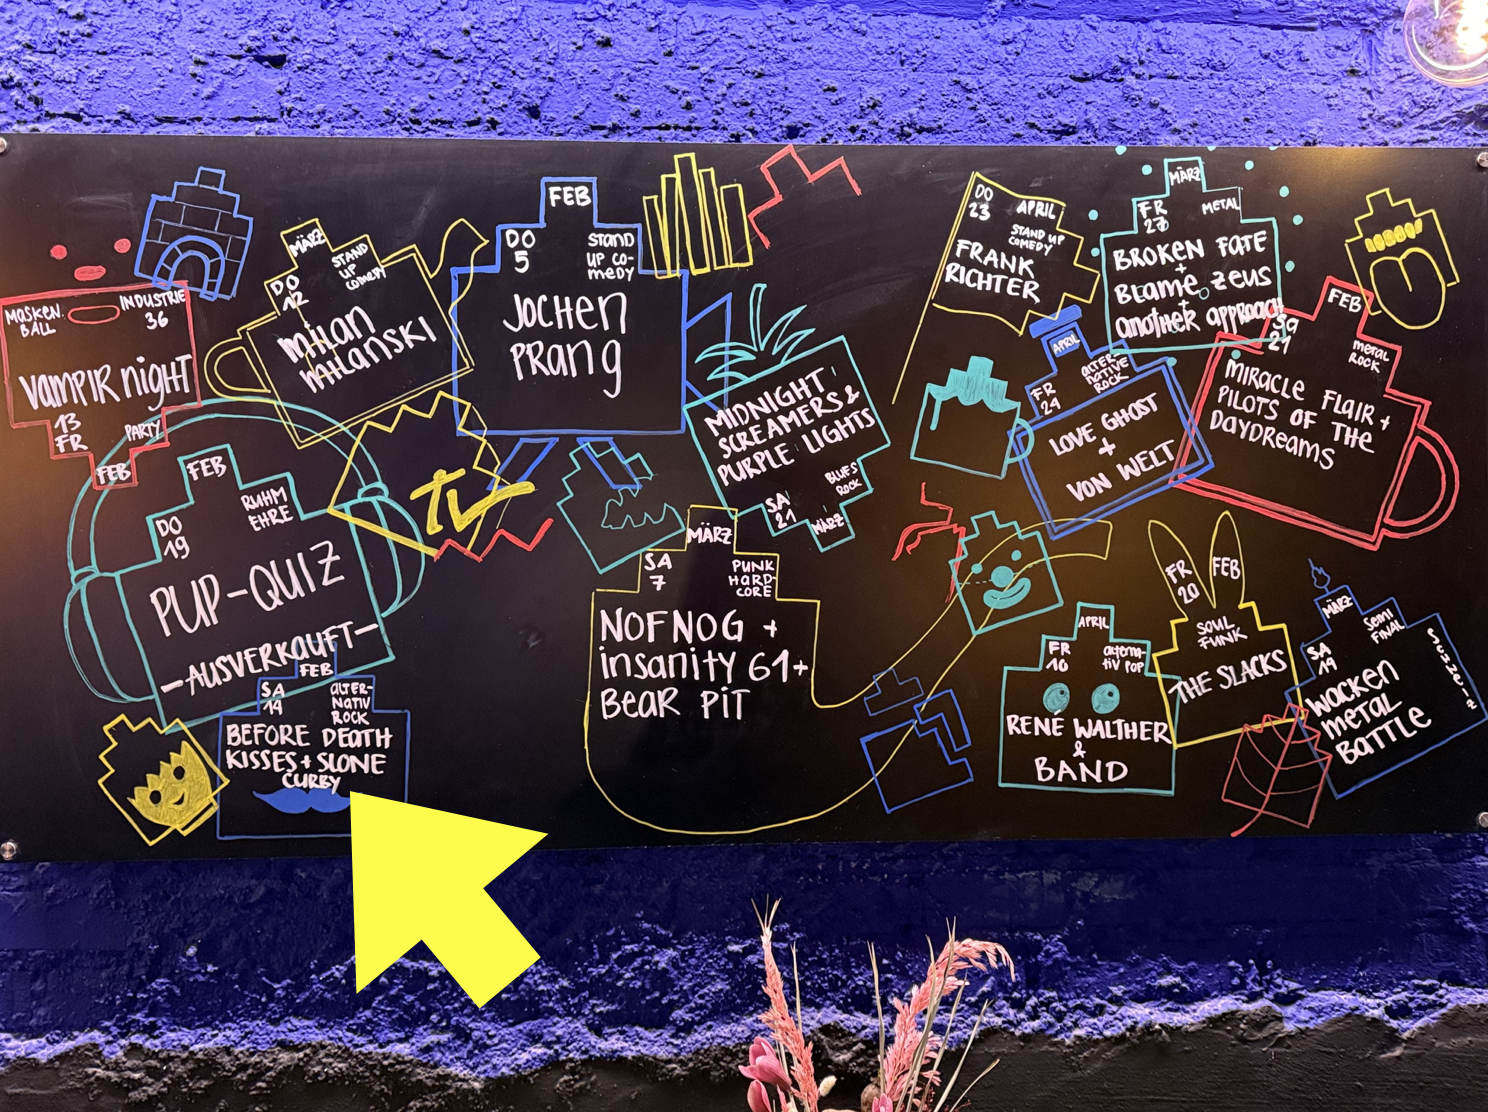 MASKEN.
BALL
INDUSTRIE
36
VAMPIR NIGHT
13
FR
PARTY
FEB
MÄRZ
DO
12
STAND
UP
COMEDY
MILAN
MILANSKI
FEB
DO
5
STAND
UP CO-
MEDY
JOCHEN
PRANG
FEB
DO
19
RUHM
EHRE
PUP-QUIZ
-AUSVERKAUFT-
FEB
SA
14
ALTER-
NATIV
ROCK
BEFORE DEATH
KISSES + SLONE
CURBY
TV
MIDNIGHT
SCREAMERS &
PURPLE LIGHTS
SA
21
BLUES
ROCK
MÄRZ
MÄRZ
SA
7
PUNK
HARD-
CORE
NOFNOG +
INSANITY 61+
BEAR PIT
DO
23
APRIL
STAND UP
COMEDY
FRANK
RICHTER
MÄRZ
FR
27
METAL
BROKEN FATE
+
BLAME ZEUS
+
ANOTHER APPROACH
APRIL
FR
24
ALTER
NATIVE
ROCK
LOVE GHOST
+
VON WELT
FEB
SA
21
METAL
ROCK
MIRACLE FLAIR +
PILOTS OF THE
DAYDREAMS
APRIL
FR
10
ALTERNA-
TIV POP
RENÉ WALTHER
&
BAND
FR
20
FEB
SOUL
FUNK
THE SLACKS
MÄRZ
SEMI
FINAL
SCHWEIZ
SA
14
WACKEN
METAL
BATTLE